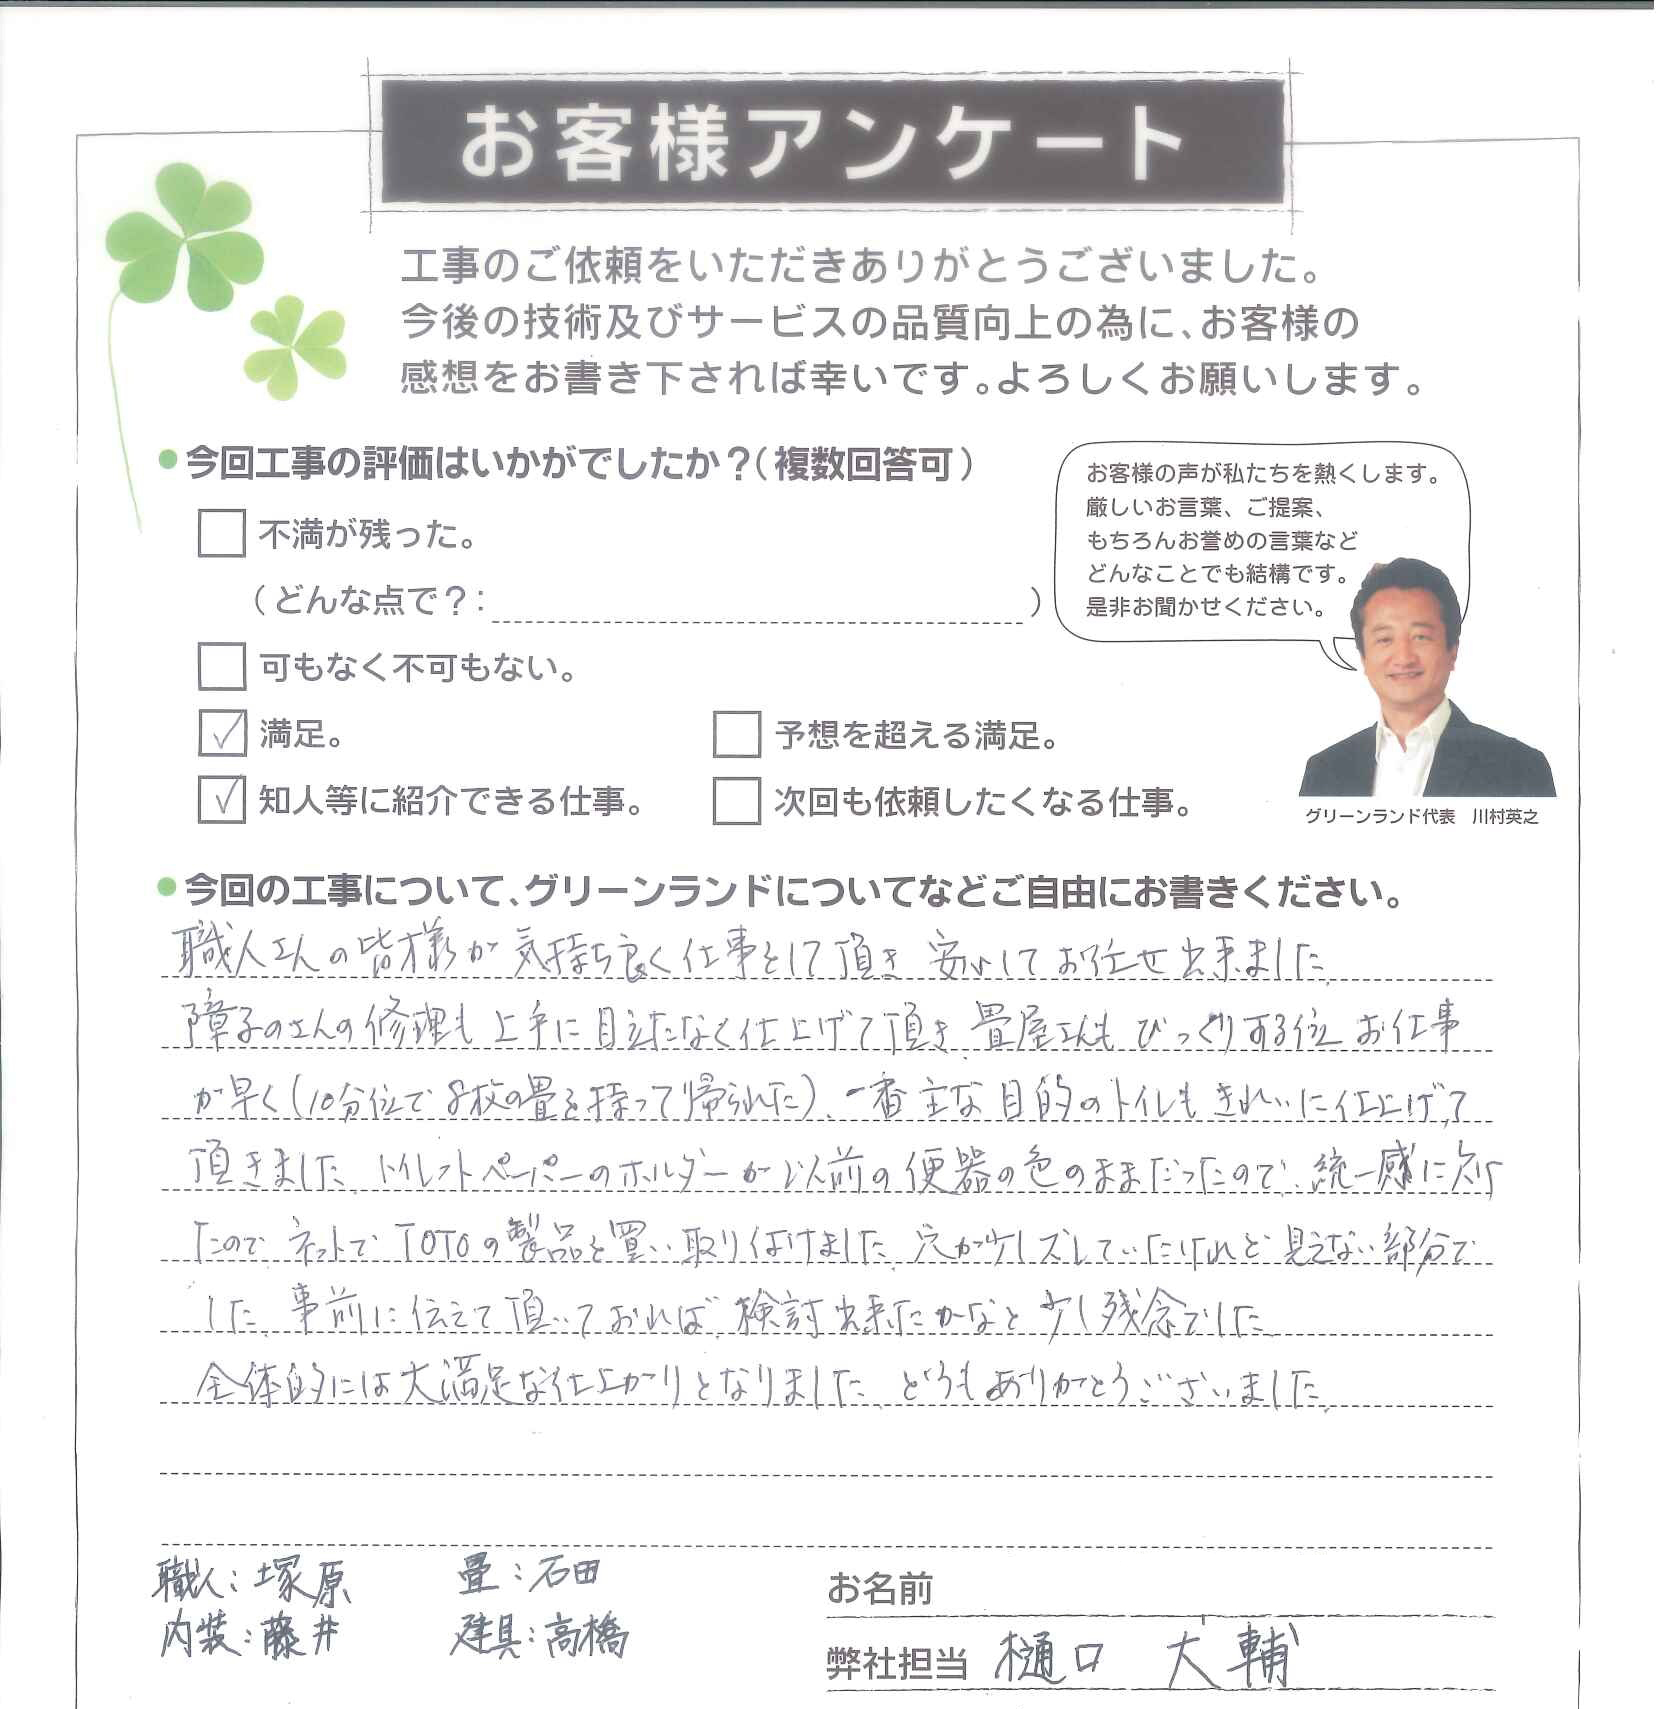 お客様アンケート
工事のご依頼をいただきありがとうございました。
今後の技術及びサービスの品質向上の為に、お客様の
感想をお書き下されば幸いです。よろしくお願いします。
今回工事の評価はいかがでしたか？（複数回答可）
不満が残った。
（どんな点で？：　）
可もなく不可もない。
満足。
予想を超える満足。
知人等に紹介できる仕事。
次回も依頼したくなる仕事。
お客様の声が私たちを熱くします。
厳しいお言葉、ご提案、
もちろんお誉めの言葉など
どんなことでも結構です。
是非お聞かせください。
グリーンランド代表　川村英之
今回の工事について、グリーンランドについてなどご自由にお書きください。
職人さんの皆様が気持ち良く仕事をして頂き 安心してお任せ出来ました
障子のさんの修理も上手に目立たなく仕上げて頂き、畳屋さんもびっくりする位お仕事
が早く（10分位で8枚の畳を持って帰られた）、一番主な目的のトイレもきれいに仕上げて
頂きました。トイレットペーパーのホルダーが以前の便器の色のままだったので、統一感に欠け
たのでネットでTOTOの製品を買い取り付けました。穴が少しズレていたけれど見えない部分で
した。事前に伝えて頂いておれば、検討出来たかなと少し残念でした
全体的には大満足な仕上がりとなりました。どうもありがとうございました。
職人：塚原
畳：石田
内装：藤井
建具：高橋
お名前
弊社担当 樋口 大輔